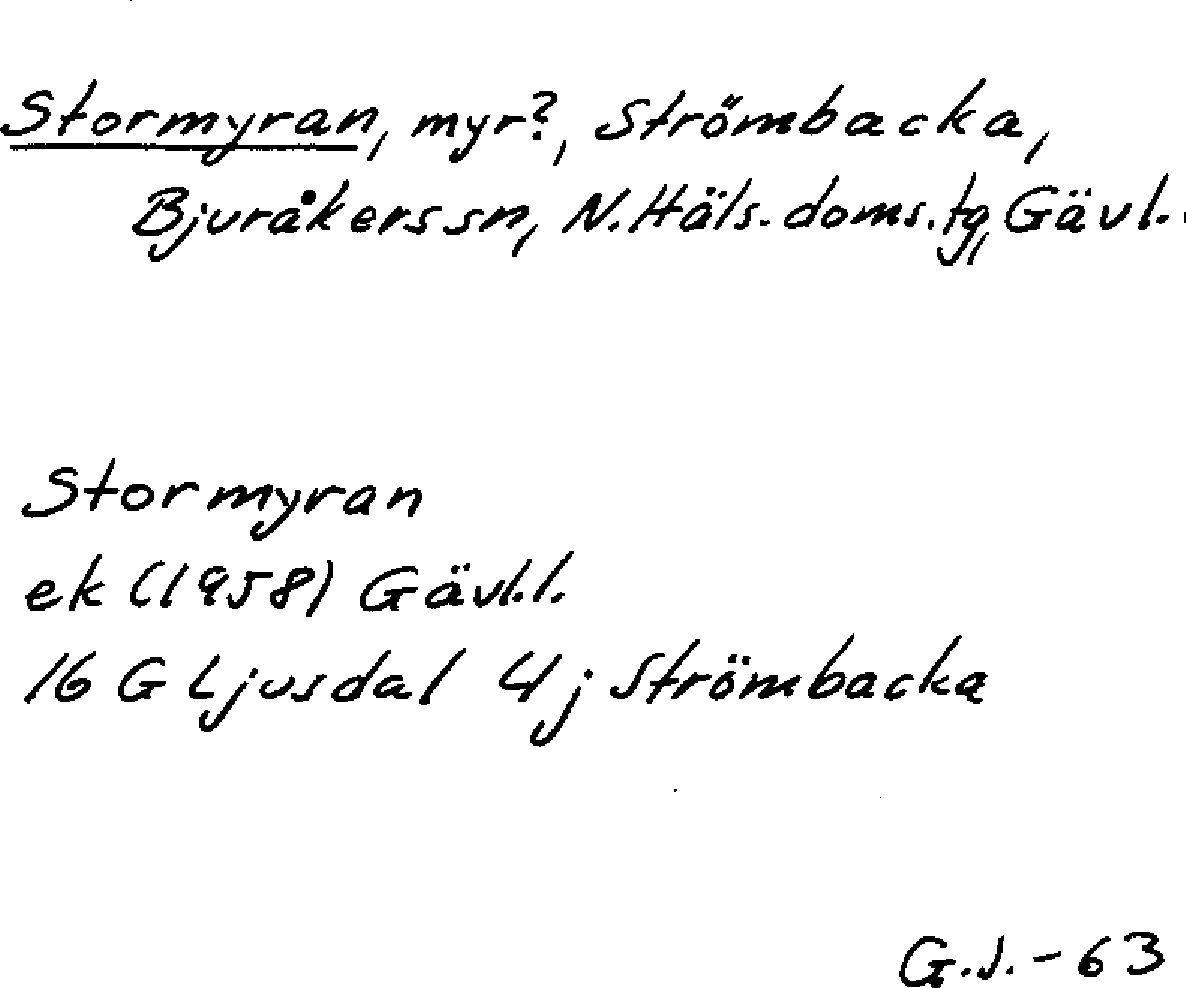 Stormyran, myr?, Strömbacka,
Bjuråkers sn, N. Häls. doms. tg, Gävl.
Stormyran
ek (1958) Gävl.l.
16 G Ljusdal 4j Strömbacka
G.J.-63